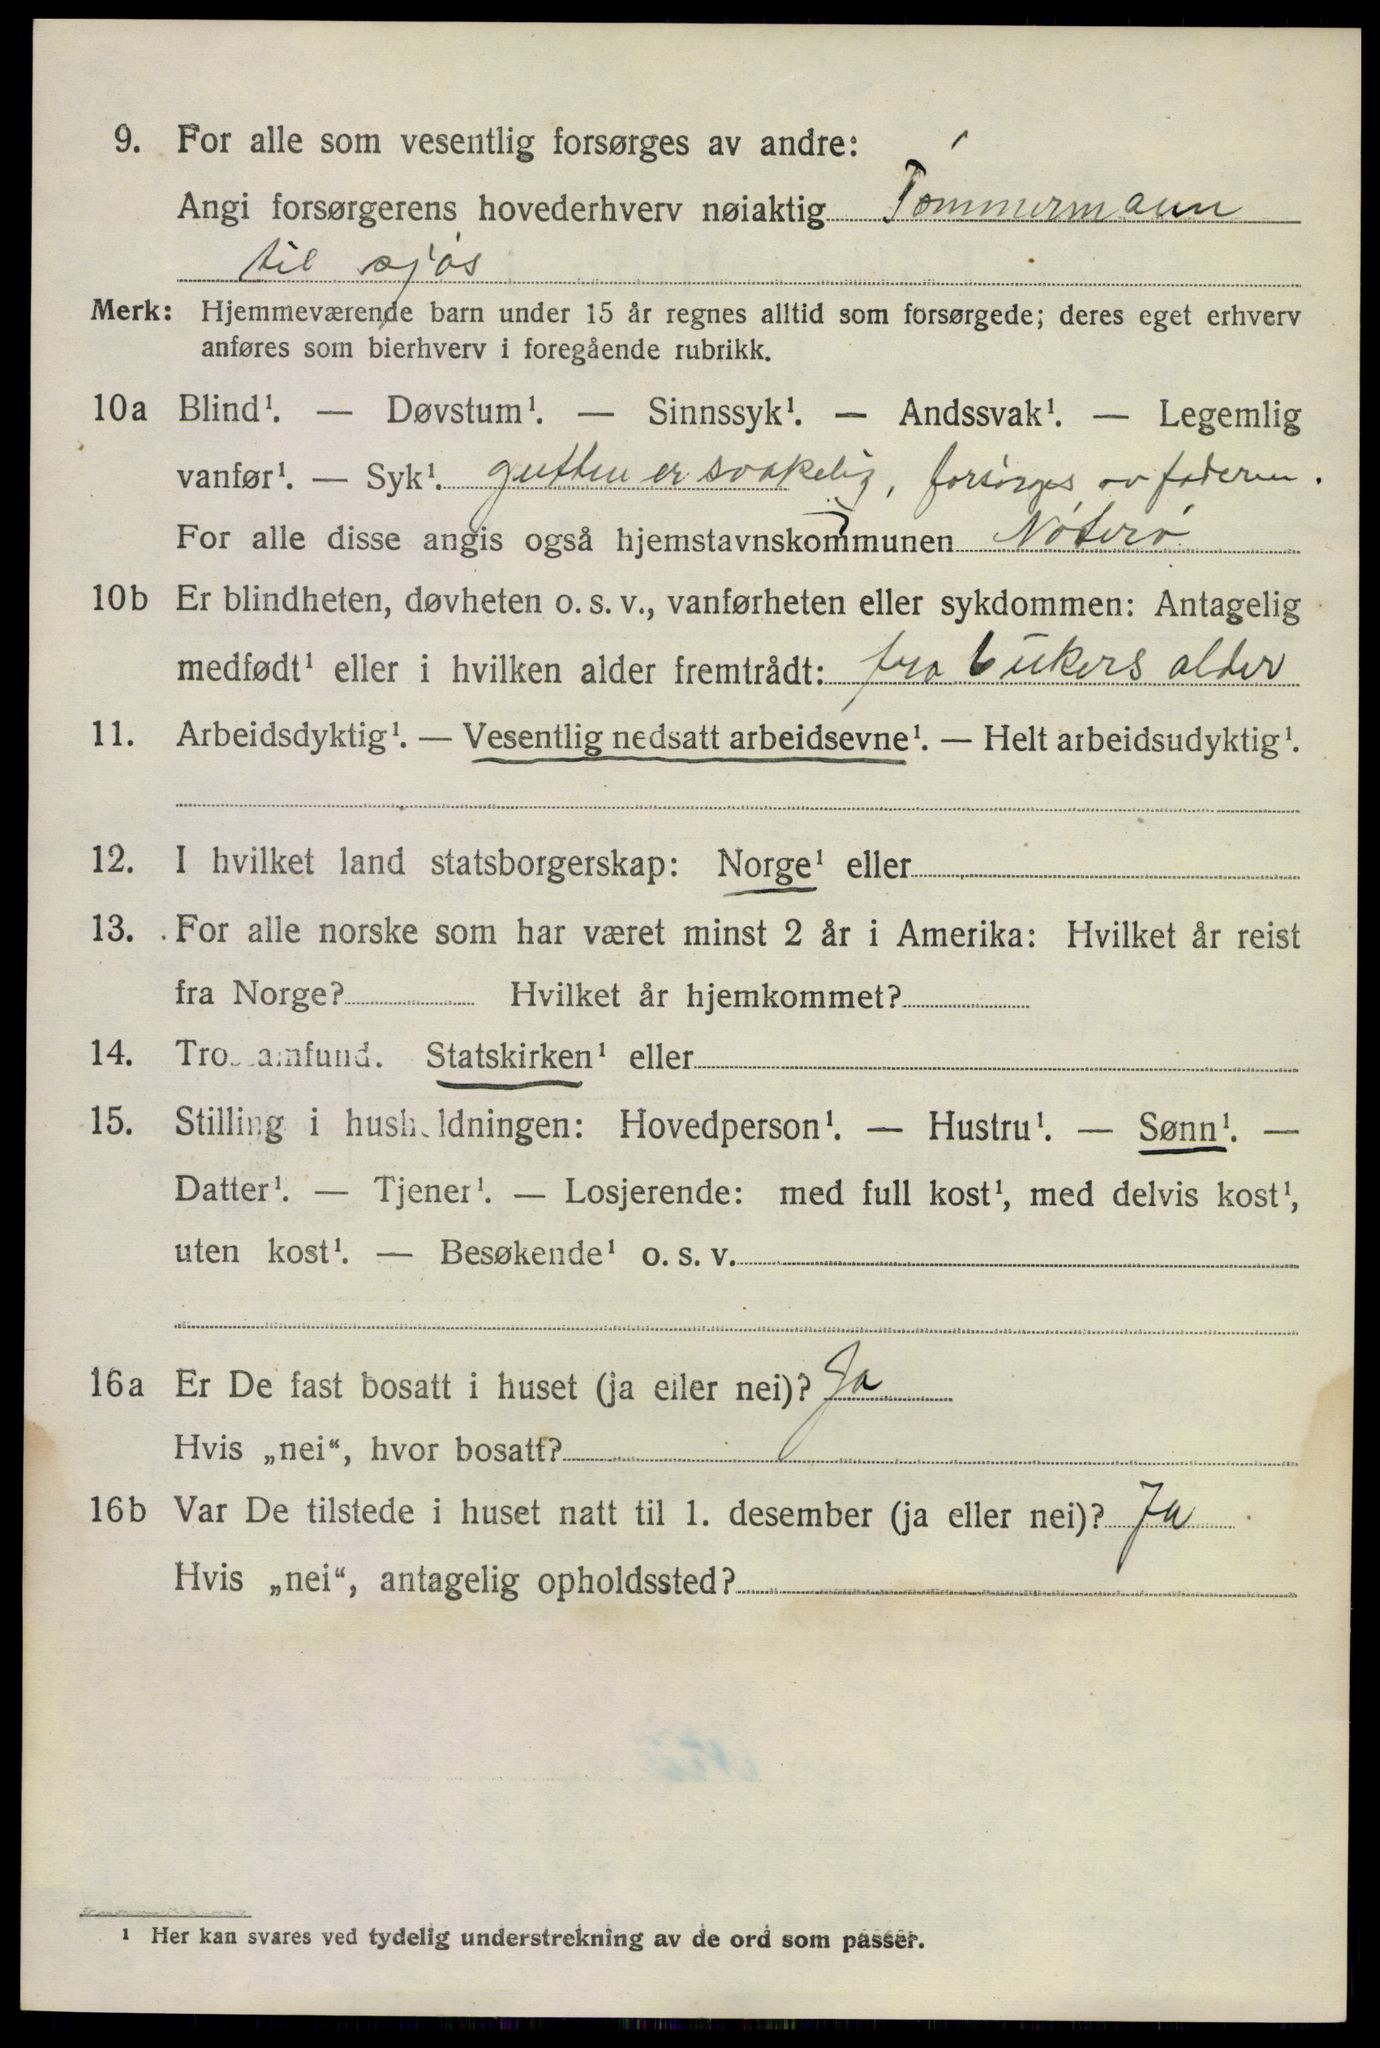 9. For alle som vesentlig forsørges av andre:
Angi forsørgerens hovederhverv nøiaktig Tómmermann
til sjós
Merk: Hjemmeværende barn under 15 år regnes alltid som forsørgede; deres eget erhverv
anføres som bierhverv i foregående rubrikk.
10a Blind¹. — Døvstum¹. — Sinnssyk¹. — Andssvak¹. — Legemlig
vanfør¹. — Syk¹. gutten er svakelig, forsórges av faderen.
For alle disse angis også hjemstavnskommunen Nóteró
10b Er blindheten, døvheten o. s. v., vanførheten eller sykdommen: Antagelig
medfødt¹ eller i hvilken alder fremtrådt: fra 6 ukers alder
11. Arbeidsdyktig¹. — Vesentlig nedsatt arbeidsevne¹. — Helt arbeidsudyktig¹.
12. I hvilket land statsborgerskap: Norge¹ eller
13. For alle norske som har været minst 2 år i Amerika: Hvilket år reist
fra Norge? Hvilket år hjemkommet?
14. Trossamfund. Statskirken¹ eller
15. Stilling i husholdningen: Hovedperson¹. — Hustru¹. — Sønn¹. —
Datter¹. — Tjener¹. — Losjerende: med full kost¹, med delvis kost¹,
uten kost¹. — Besøkende¹ o. s. v.
16a Er De fast bosatt i huset (ja eller nei)? Ja
Hvis „nei“, hvor bosatt?
16b Var De tilstede i huset natt til 1. desember (ja eller nei)? Ja
Hvis „nei“, antagelig opholdssted?
¹ Her kan svares ved tydelig understrekning av de ord som passer.